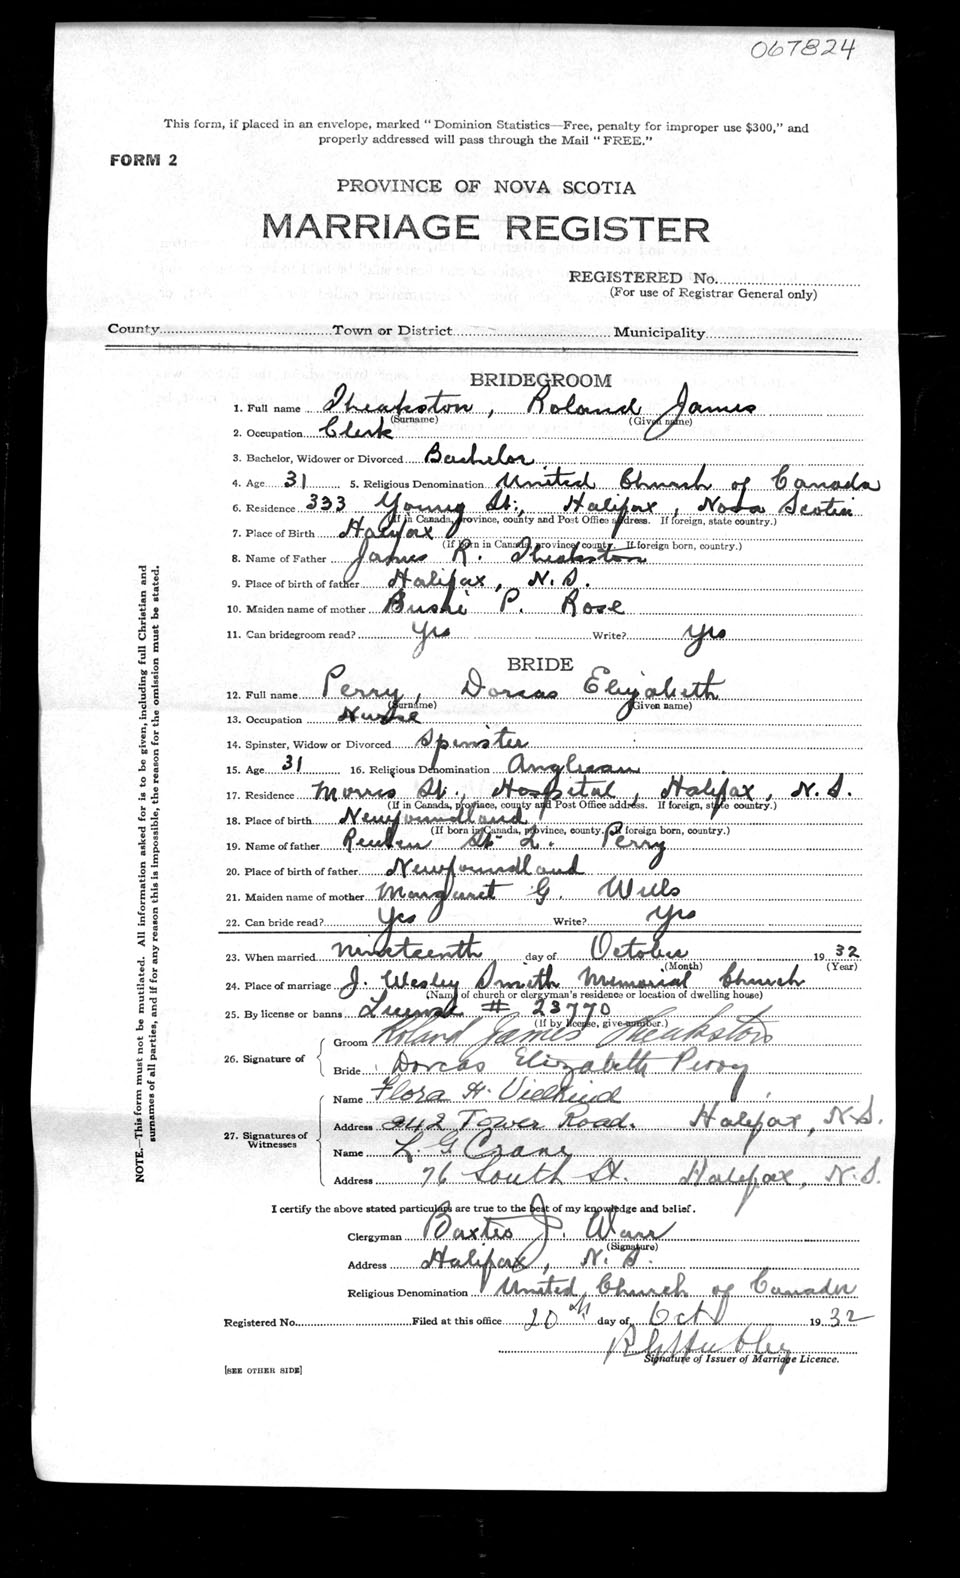 067824
This form, if placed in an envelope, marked "Dominion Statistics—Free, penalty for improper use $300," and
properly addressed will pass through the Mail "FREE."
FORM 2
PROVINCE OF NOVA SCOTIA
MARRIAGE REGISTER
REGISTERED No.
(For use of Registrar General only)
County Town or District Municipality
BRIDEGROOM
1. Full name Theakston, Roland James
(Surname) (Given name)
2. Occupation Clerk
3. Bachelor, Widower or Divorced Bachelor
4. Age 31 5. Religious Denomination United Church of Canada
6. Residence 333 Young St., Halifax, Nova Scotia
(If in Canada, province, county and Post Office address. If foreign, state country.)
7. Place of Birth Halifax
(If born in Canada, province, county. If foreign born, country.)
8. Name of Father James R. Theakston
9. Place of birth of father Halifax, N.S.
10. Maiden name of mother P. Rose
11. Can bridegroom read? Yes Write? Yes
BRIDE
12. Full name Perry, Dorcas Elizabeth
(Surname) (Given name)
13. Occupation Nurse
14. Spinster, Widow or Divorced Spinster
15. Age 31 16. Religious Denomination Anglican
17. Residence Morris St., Hospital, Halifax, N.S.
(If in Canada, province, county and Post Office address. If foreign, state country.)
18. Place of birth Newfoundland
(If born in Canada, province, county. If foreign born, country.)
19. Name of father Reuben St. L. Perry
20. Place of birth of father Newfoundland
21. Maiden name of mother Margaret G. Wells
22. Can bride read? Yes Write? Yes
23. When married nineteenth day of October 1932
(Month) (Year)
24. Place of marriage J. Wesley Smith Memorial Church
(Name of church or clergyman's residence or location of dwelling house)
25. By license or banns License # 23770
(If by license, give number.)
26. Signature of
Groom Roland James Theakston
Bride Dorcas Elizabeth Perry
27. Signatures of Witnesses
Name Flora H. Vielkind
Address 242 Tower Road. Halifax, N.S.
Name L. G. Crane
Address 76 South St. Halifax, N.S.
I certify the above stated particulars are true to the best of my knowledge and belief.
Clergyman Baxter J. Warr
(Signature)
Address Halifax, N.S.
Religious Denomination United Church of Canada
Registered No. Filed at this office 20th day of Oct 1932
Hubley
Signature of Issuer of Marriage Licence.
[SEE OTHER SIDE]
NOTE.—This form must not be mutilated. All information asked for is to be given, including full Christian and
surnames of all parties, and if for any reason this is impossible, the reason for the omission must be stated.